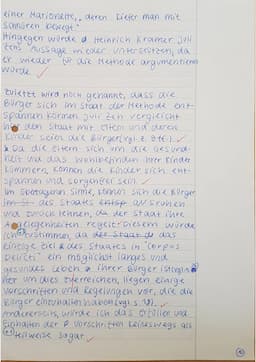 einer Marionette, deren Kiefer man mit
Schnüren bewegt."
Hingegen würde Heinrich Kramer Juli
Zehs Aussage wieder unterstützen, da
er wieder für die Methode argumentieren
würde.
Zuletzt wird noch genannt, dass die
Bürger sich im Staat der Methode ent-
spannen können. Juli Zeh vergleicht
den Staat mit Eltern und deren
Kinder seien die Bürger (vgl. Z.
Da die Eltern sich um die Gesund-
heit und das Wohlbefinden ihrer Kinder
kümmern, können die Kinder sich ent-
spannen und sorgenfrei sein.
Im übertragenen Sinne, können sich die Bürger
des Staates entspannen
und zurück lehnen, da der Staat ihre
Angelegenheiten regelt. Diesem würde
ich zustimmen, da
einzige Ziel des Staates in "Corpus
Delicti" ein möglichst langes und
gesundes Leben ihrer Bürger ist (vgl.
Um dies zu erreichen, liegen einige
Vorschriften und Regelungen vor, die die
Bürger einzuhalten haben (vgl. S.
Andererseits, würde ich das Erfüllen und
Einhalten der Vorschriften keineswegs als
teilweise sogar